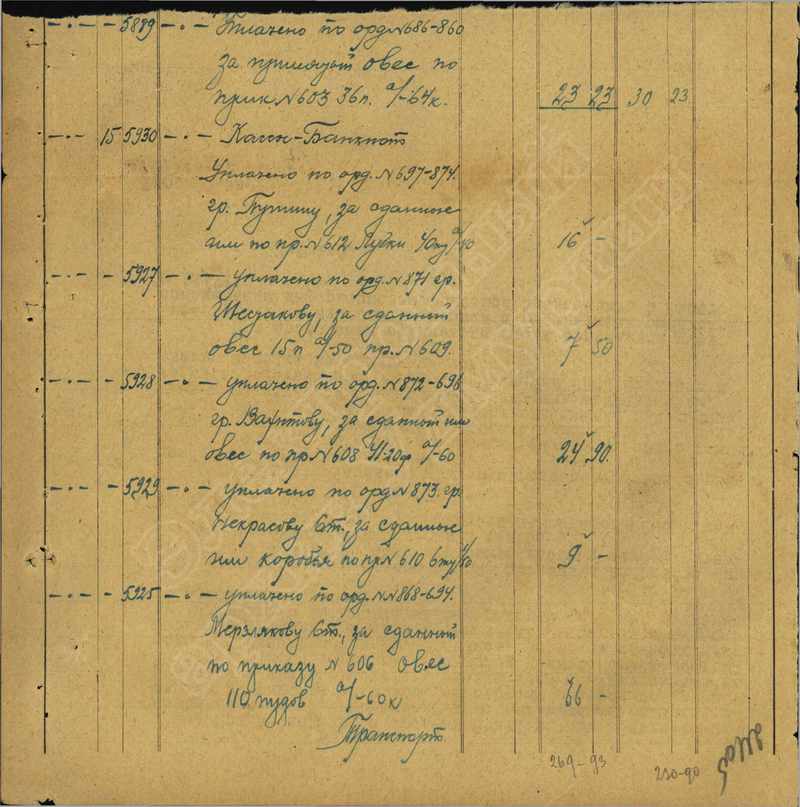 — · — 5889 — · — Уплачено по орд. №686-860
за принятый овес по
прик. №603 36п. а/-64к. 23 23 30 23
— · — 15 5930 — · — Кассы-Банкнот
Уплачено по орд. №697-874.
гр. за сданные
им по пр. №612 40 шт а/40 16 -
— · — 5927 — · — уплачено по орд. №871 гр.
за сданный
овес 15п а/-50 пр. №609. 7 50
— · — 5928 — · — уплачено по орд. №872-696
гр. Вахитову, за сданный им
овес по пр. №608 41-20ф а/-60 24 90.
— · — 5929 — · — уплачено по орд. №873. гр.
Некрасову Ст., за сданные
им коробья по пр№610 6шт 9 -
— · — 5925 — · — уплачено по орд. №№868-694.
Мерзлякову Ст., за сданный
по приказу №606 овес
110 пудов а/-60к 66 -
Транспорт
269-93 230-90